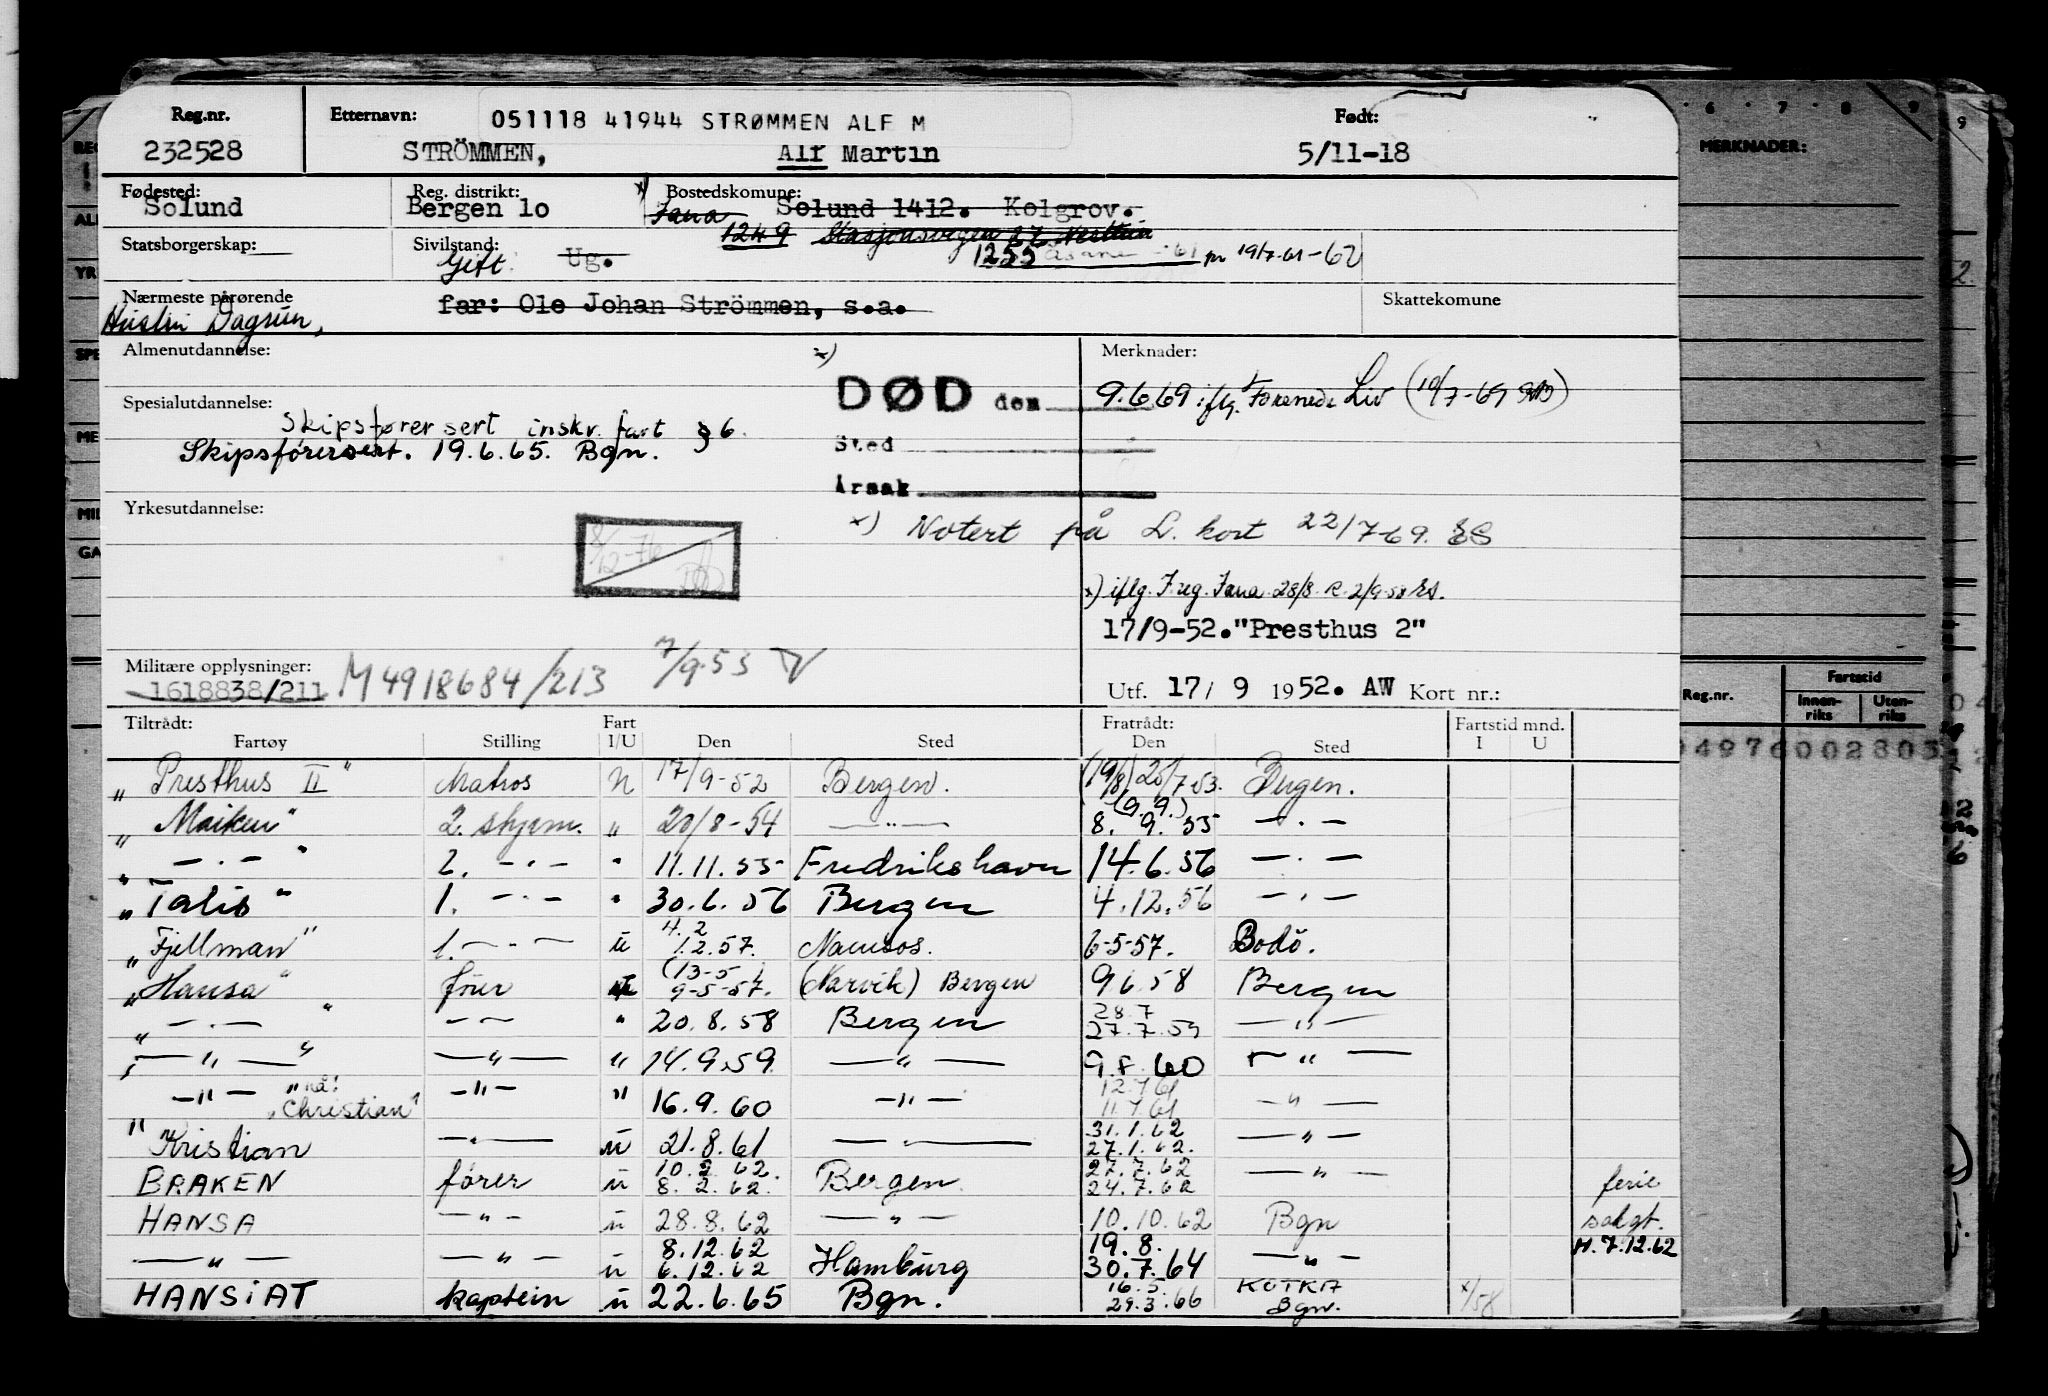 Reg.nr. Etternavn: 051118 41944 STRØMMEN ALF M Født:
232528 STRÖMMEN, Alf Martin 5/11-18
Fødested: Reg. distrikt: x) Bostedskomune:
Solund Bergen 10 Fana Solund 1412. Kolgrov.
1249 Stasjonsvegen 22 Nesttun
Statsborgerskap: Sivilstand: 1255 Åsane -61 pr 19/7-61-62
Gift. Ug.
Nærmeste pårørende far: Ole Johan Strömmen, s.a. Skattekomune
Hustru Dagrun,
Almenutdannelse: x) Merknader:
DØD den 9.6.69 iflg. Forenede Liv (10/7-69
Spesialutdannelse:
Skipsfører sert inskr. fart § 6.
Sted
Skipsförersert. 19.6.65. Bgn.
Årsak
Yrkesutdannelse:
x) Notert på L. kort 22/7-69.
8/12-76
x) iflg. F.reg. Fana 28/8 R. 2/9-58 rs.
17/9-52."Presthus 2"
Militære opplysninger: M4918684/213 7/9-53
1618838/211
Utf. 17/ 9 1952. AW Kort nr.:
Tiltrådt: Fart Fratrådt: Fartstid mnd.
Fartøy Stilling I/U Den Sted Den Sted I U
„ Presthus II" Matros N 17/9-52 Bergen. (19/8) 20/7-53. Bergen.
(9.9.)
„ Maiken" 2. styrm. „ 20/8-54 —"— 8. 9. 55 — . —
„ — . — " 2. — . — " 11.11.55 Fredrikshavn 14.6.56 — . —
„ Talis " 1. — . — " 30.6.56 Bergen 4.12.56 — . —
4.2
„ Fjellman" 1. — . — u 1.2.57. Namsos. 6-5-57. Bodö.
(13-5)
„ Hansa" förer 9-5-57. (Narvik) Bergen 9.6.58 Bergen
28.7
„ — . — " — — " 20.8.58 Bergen 27.7.59 — " —
„ — " — " — " — " 14.9.59. — " — 9.8.60 — " —
12.7.61
— " — "nå: "Christian" — " — " 16.9.60 — " — 11.7.61 — " —
31.1.62
" Kristian — " — u 21.8.61 — " — 27.1.62. — " —
10.2.62. 27.7.62
BRAKEN förer u 8.2.62. Bergen 24.7.62 — " — ferie
HANSA — " — u 28.8.62 — " — 10.10.62 Bgn solgt.
8.12.62 19.8. H.7.12.62
— " — — " — u 6.12.62 Hamburg 30.7.64 — " —
16.5. KOTKA
HANSIAT kaptein u 22.6.65 Bgn. 29.3.66 Bgn. x/58
6 7 8 9
MERKNADER:
Reg.nr. Fartstid
Innen-riks Uten-riks
04976002803